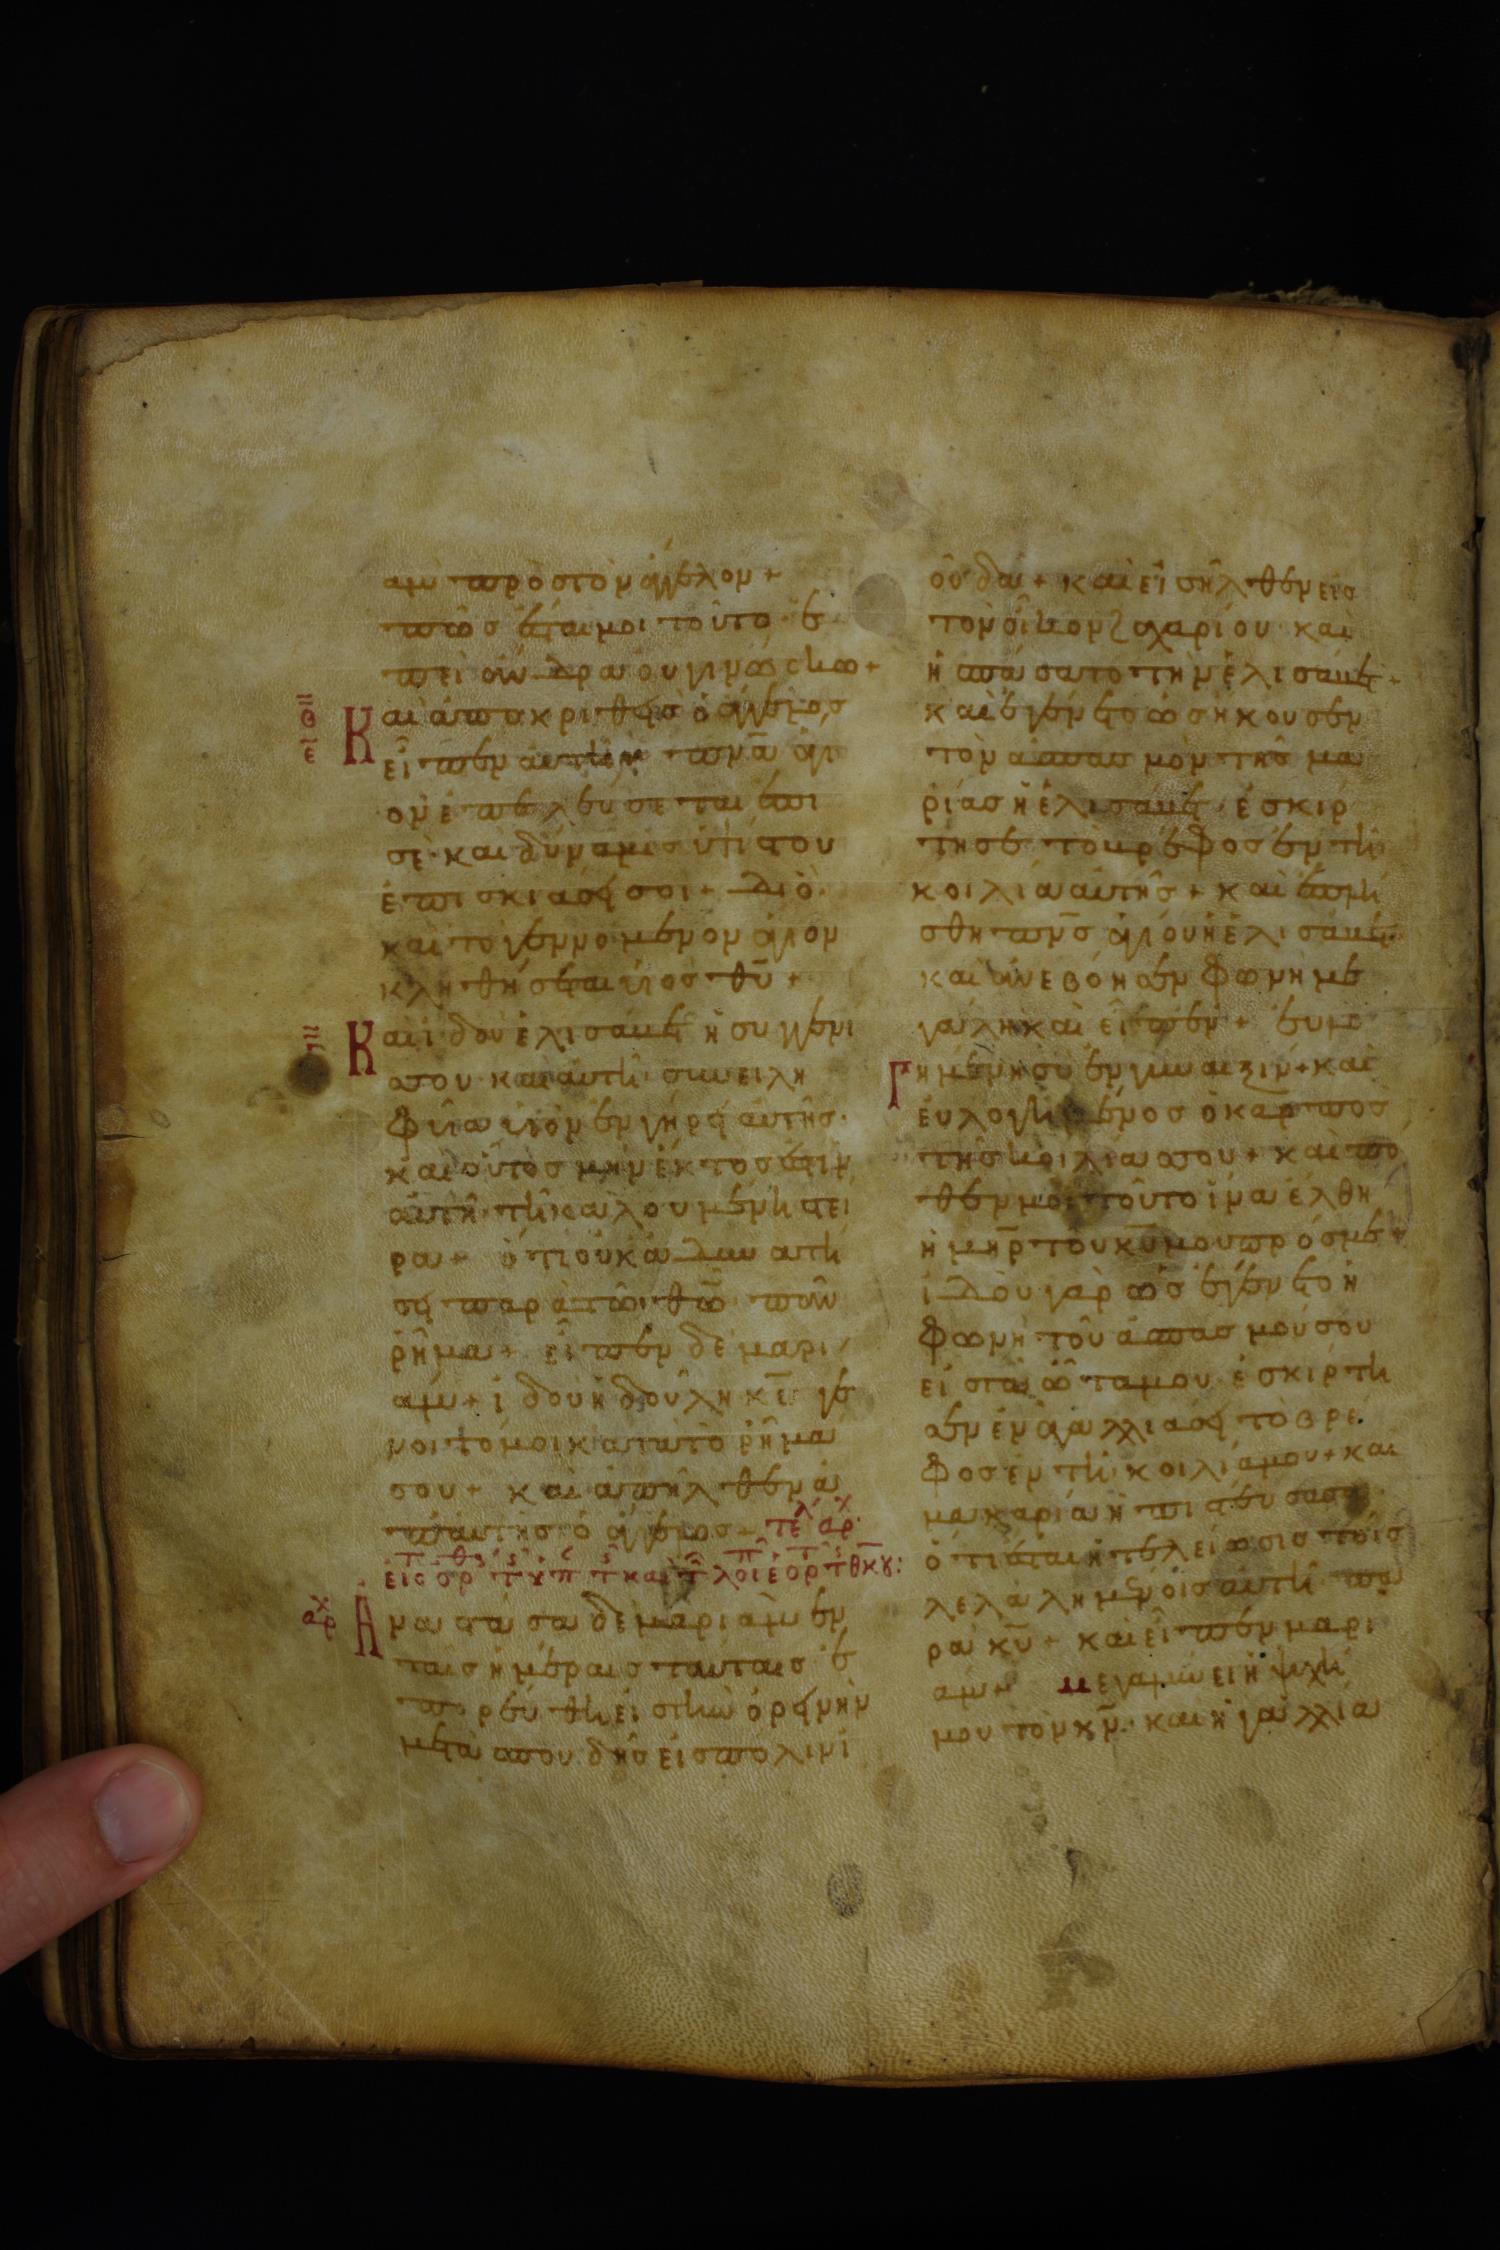 αμ πρὸς τὸν ἄγγελον +
πῶς ἔσται μοι τοῦτο ἐ
πεὶ ἄνδρα οὐ γινώσκω +
Καὶ ἀποκριθεὶς ὁ ἄγγελος
εἶπεν αὐτῆ πνᾶ ἅγι
ον ἐπελεύσεται ἐπι
σὲ καὶ δύναμις ὑψίστου
ἐπισκιάσει σοι + διὸ
καὶ το γεννόμενον ἅγιον
κληθήσεται υἱὸς θῦ +
Καὶ ἰδοὺ ἐλισάβετ ἡ συγγενι
σου καὶ αὐτὴ συνειλη
φυῖα υἱὸν ἐν γήρει αὐτῆς
καὶ οὗτος μὴν ἕκτος ἐστὶν
αὐτῆ τῆ καλουμένη στεί
ρα + ὅτι οὐκ ἀδυνατή
σει παρὰ τῶ θῶ πᾶν
ῥῆμα + εἶπεν δὲ μαρι
άμ + ἰδοὺ ἡ δούλη κῦ γέ
νοιτό μοι κατὰ τὸ ῥῆμα
σου + καὶ ἀπῆλθεν ἀ
π αὐτῆς ὁ ἄγγελος + τέλ ἀρχ
Ἀναστᾶσα δὲ μαριὰμ ἐν
ταῖς ἡμέραις ταύταις ἐ
πορεύθη εἰς τὴν ὀρεινὴν
μετὰ σπουδῆς εἰς πόλιν ἰ
ούδα + καὶ εἰσῆλθεν εἰς
τὸν οἶκον ζαχαρίου καὶ
ἠσπάσατο τὴν ἐλισάβετ +
καὶ ἐγένετο ὡς ἤκουσεν
τὸν ἀσπασμὸν τῆς μα
ρίας ἡ ἐλισάβετ ἐσκίρ
τησε τὸ βρέφος ἐν τῆ
κοιλία αὐτῆς + καὶ ἐπλή
σθη πνς ἁγίου ἡ ἐλισάβετ
καὶ ἀνεβόησεν φωνὴ με
γάλη καὶ εἶπεν + ἐυλο
Γημένη σὺ ἐν γυναιξίν + καὶ
εὐλογημένος ὁ καρπὸς
τῆς κοιλίας σου + καὶ πό
θεν μοι τοῦτο ἵνα ἔλθη
ἡ μῆρ τοῦ κῦ μου πρός με +
ἰδοὺ γὰρ ὡς ἐγένετο ἡ
φωνὴ τοῦ ἀσπασμού σου
εἰς τὰ ὦτά μου ἐσκίρτη
σεν ἐν ἀγαλλιάσει τὸ βρέ
φος ἐν τῆ κοιλία μου + καὶ
μακαρία ἡ πιστεύσασα
ὅτι ἔσται τελείωσις τοῖς
λελαλημένοις αὐτῆ πα
ρὰ κῦ + καὶ εἶπεν μαρι
άμ + μεγαλύνει ἡ ψυχή
μου τὸν κν καὶ ἠγαλλία